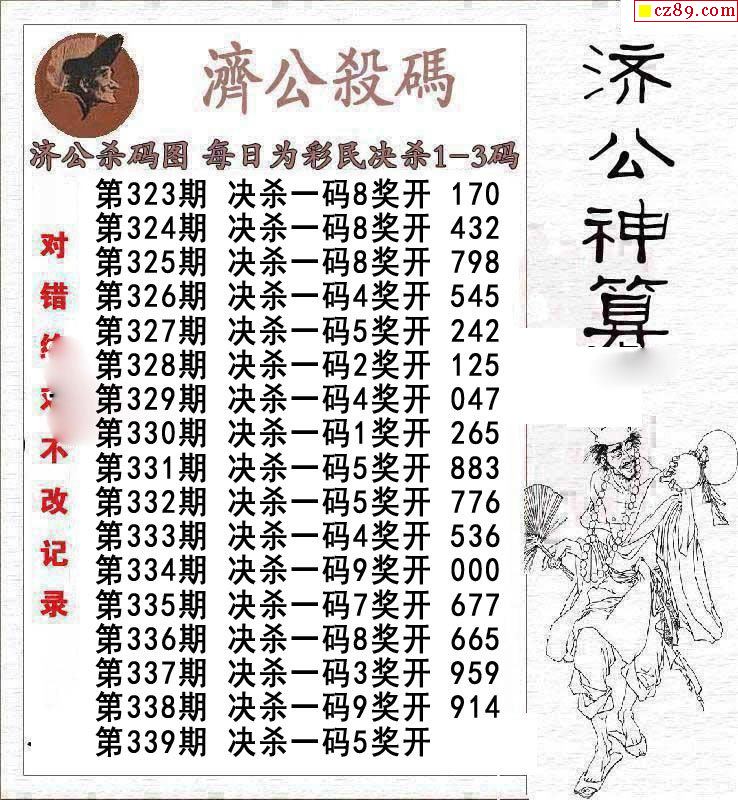 cz89.com
濟公殺碼
济公杀码图 每日为彩民决杀1-3码
第323期 决杀一码8奖开 170
第324期 决杀一码8奖开 432
第325期 决杀一码8奖开 798
第326期 决杀一码4奖开 545
第327期 决杀一码5奖开 242
第328期 决杀一码2奖开 125
第329期 决杀一码4奖开 047
第330期 决杀一码1奖开 265
第331期 决杀一码5奖开 883
第332期 决杀一码5奖开 776
第333期 决杀一码4奖开 536
第334期 决杀一码9奖开 000
第335期 决杀一码7奖开 677
第336期 决杀一码8奖开 665
第337期 决杀一码3奖开 959
第338期 决杀一码9奖开 914
第339期 决杀一码5奖开
对错不改记录
济公神算